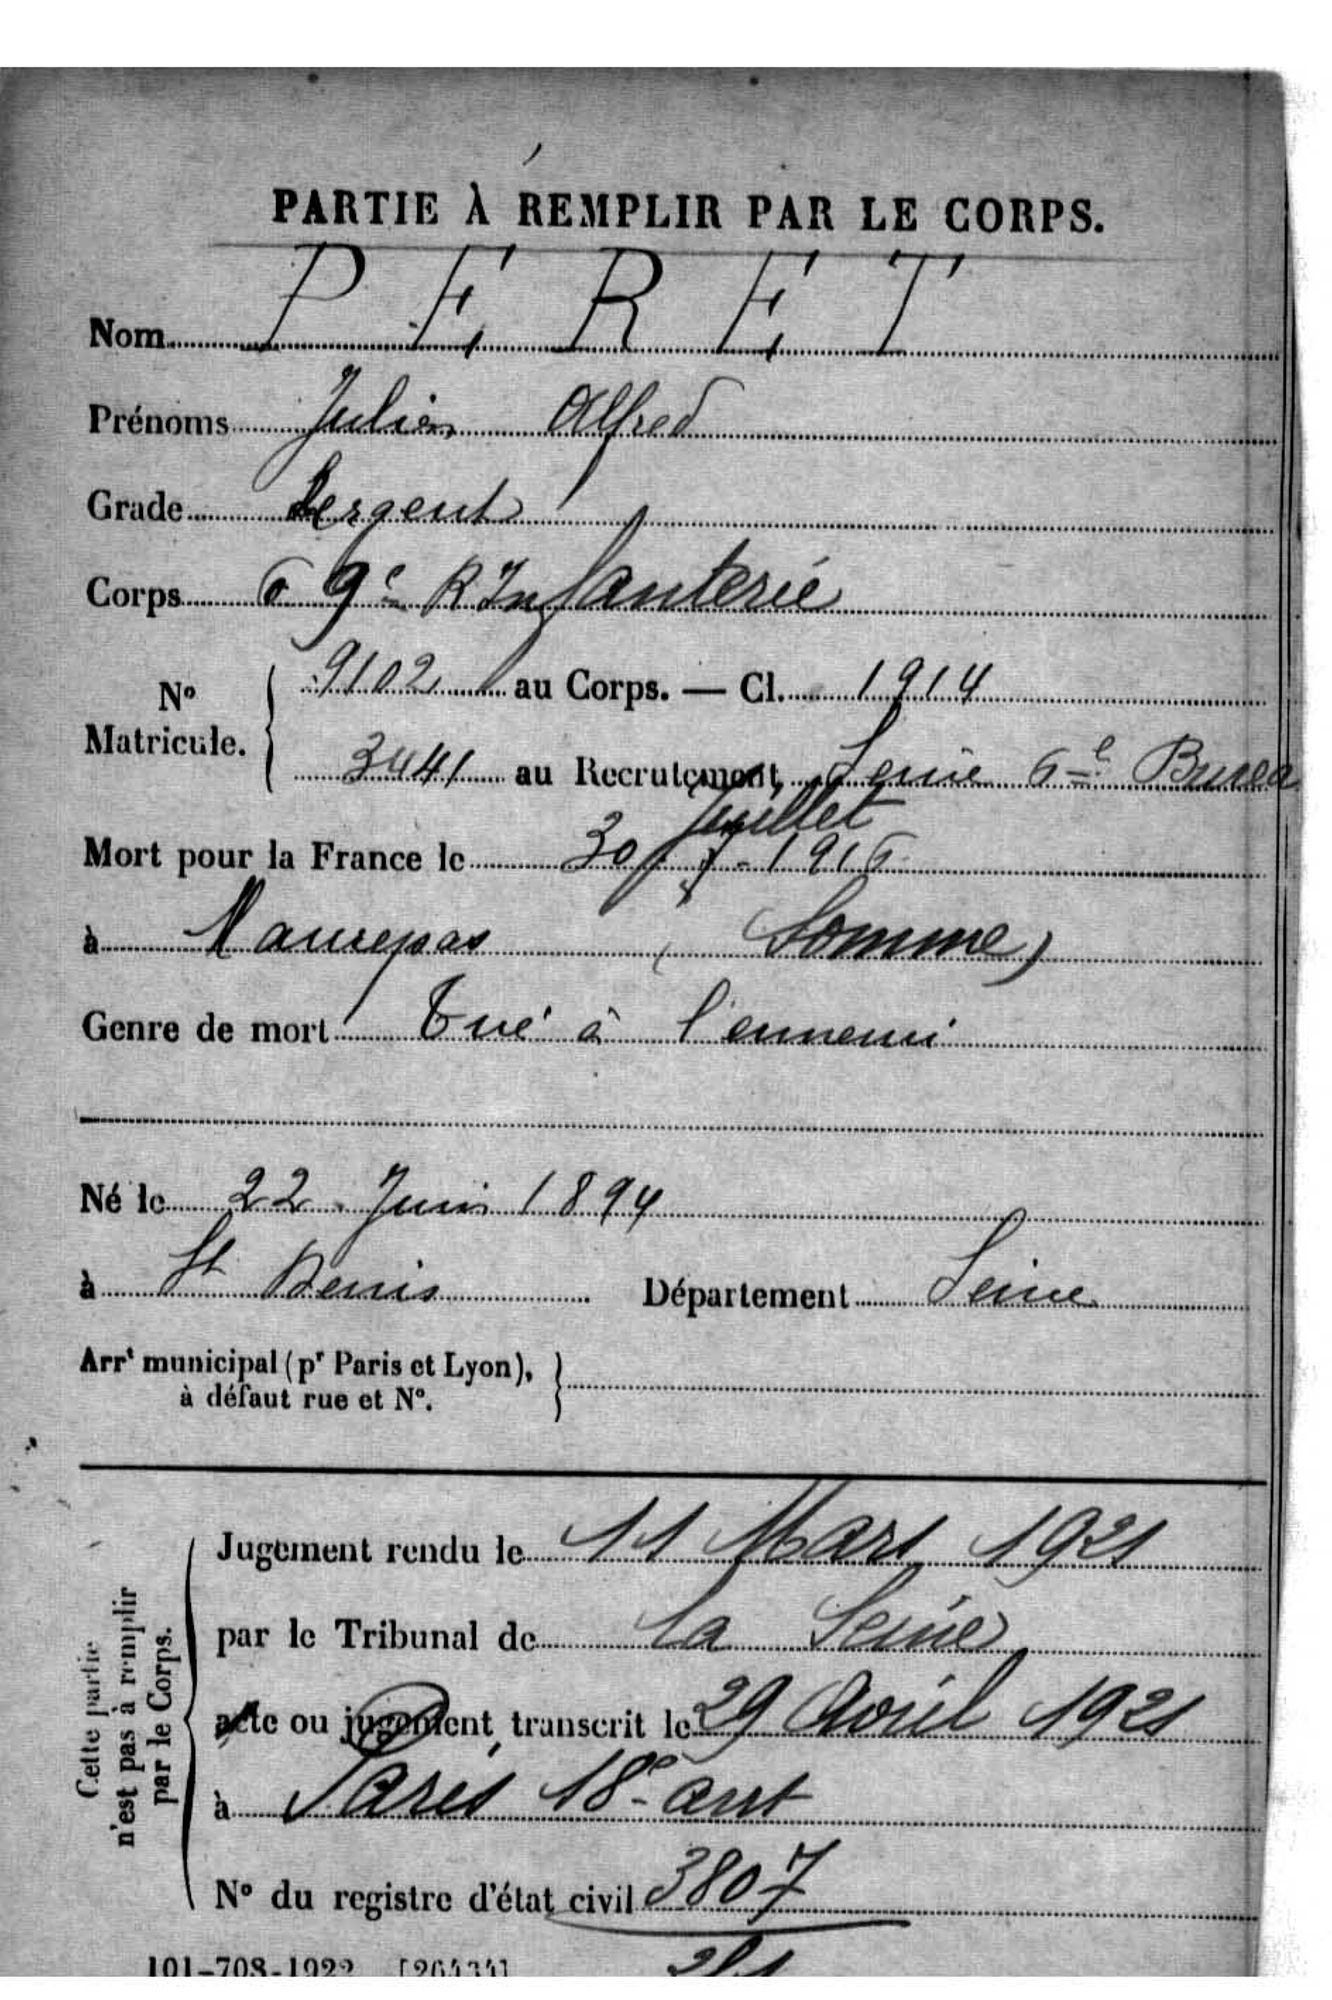 PARTIE À REMPLIR PAR LE CORPS.
Nom PERET
Prénoms Julien Alfred
Grade Sergent
Corps 69e R Infanterie
No Matricule. 9102 au Corps. — Cl. 1914
3441 au Recrutement Seine 6e Burea
Juillet
Mort pour la France le 30 7 - 1916
à Maurepas (Somme)
Genre de mort Tué à l'ennemi
Né le 22 Juin 1894
à St Denis Département Seine
Arrt municipal (pr Paris et Lyon),
à défaut rue et No.
Cette partie
n'est pas à remplir
par le Corps.
Jugement rendu le 11 Mars 1921
par le Tribunal de la Seine
acte ou jugement transcrit le 29 Avril 1921
à Paris 18e arrt
No du registre d'état civil 3807
101-708-1922